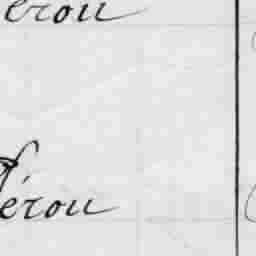 érou
érou